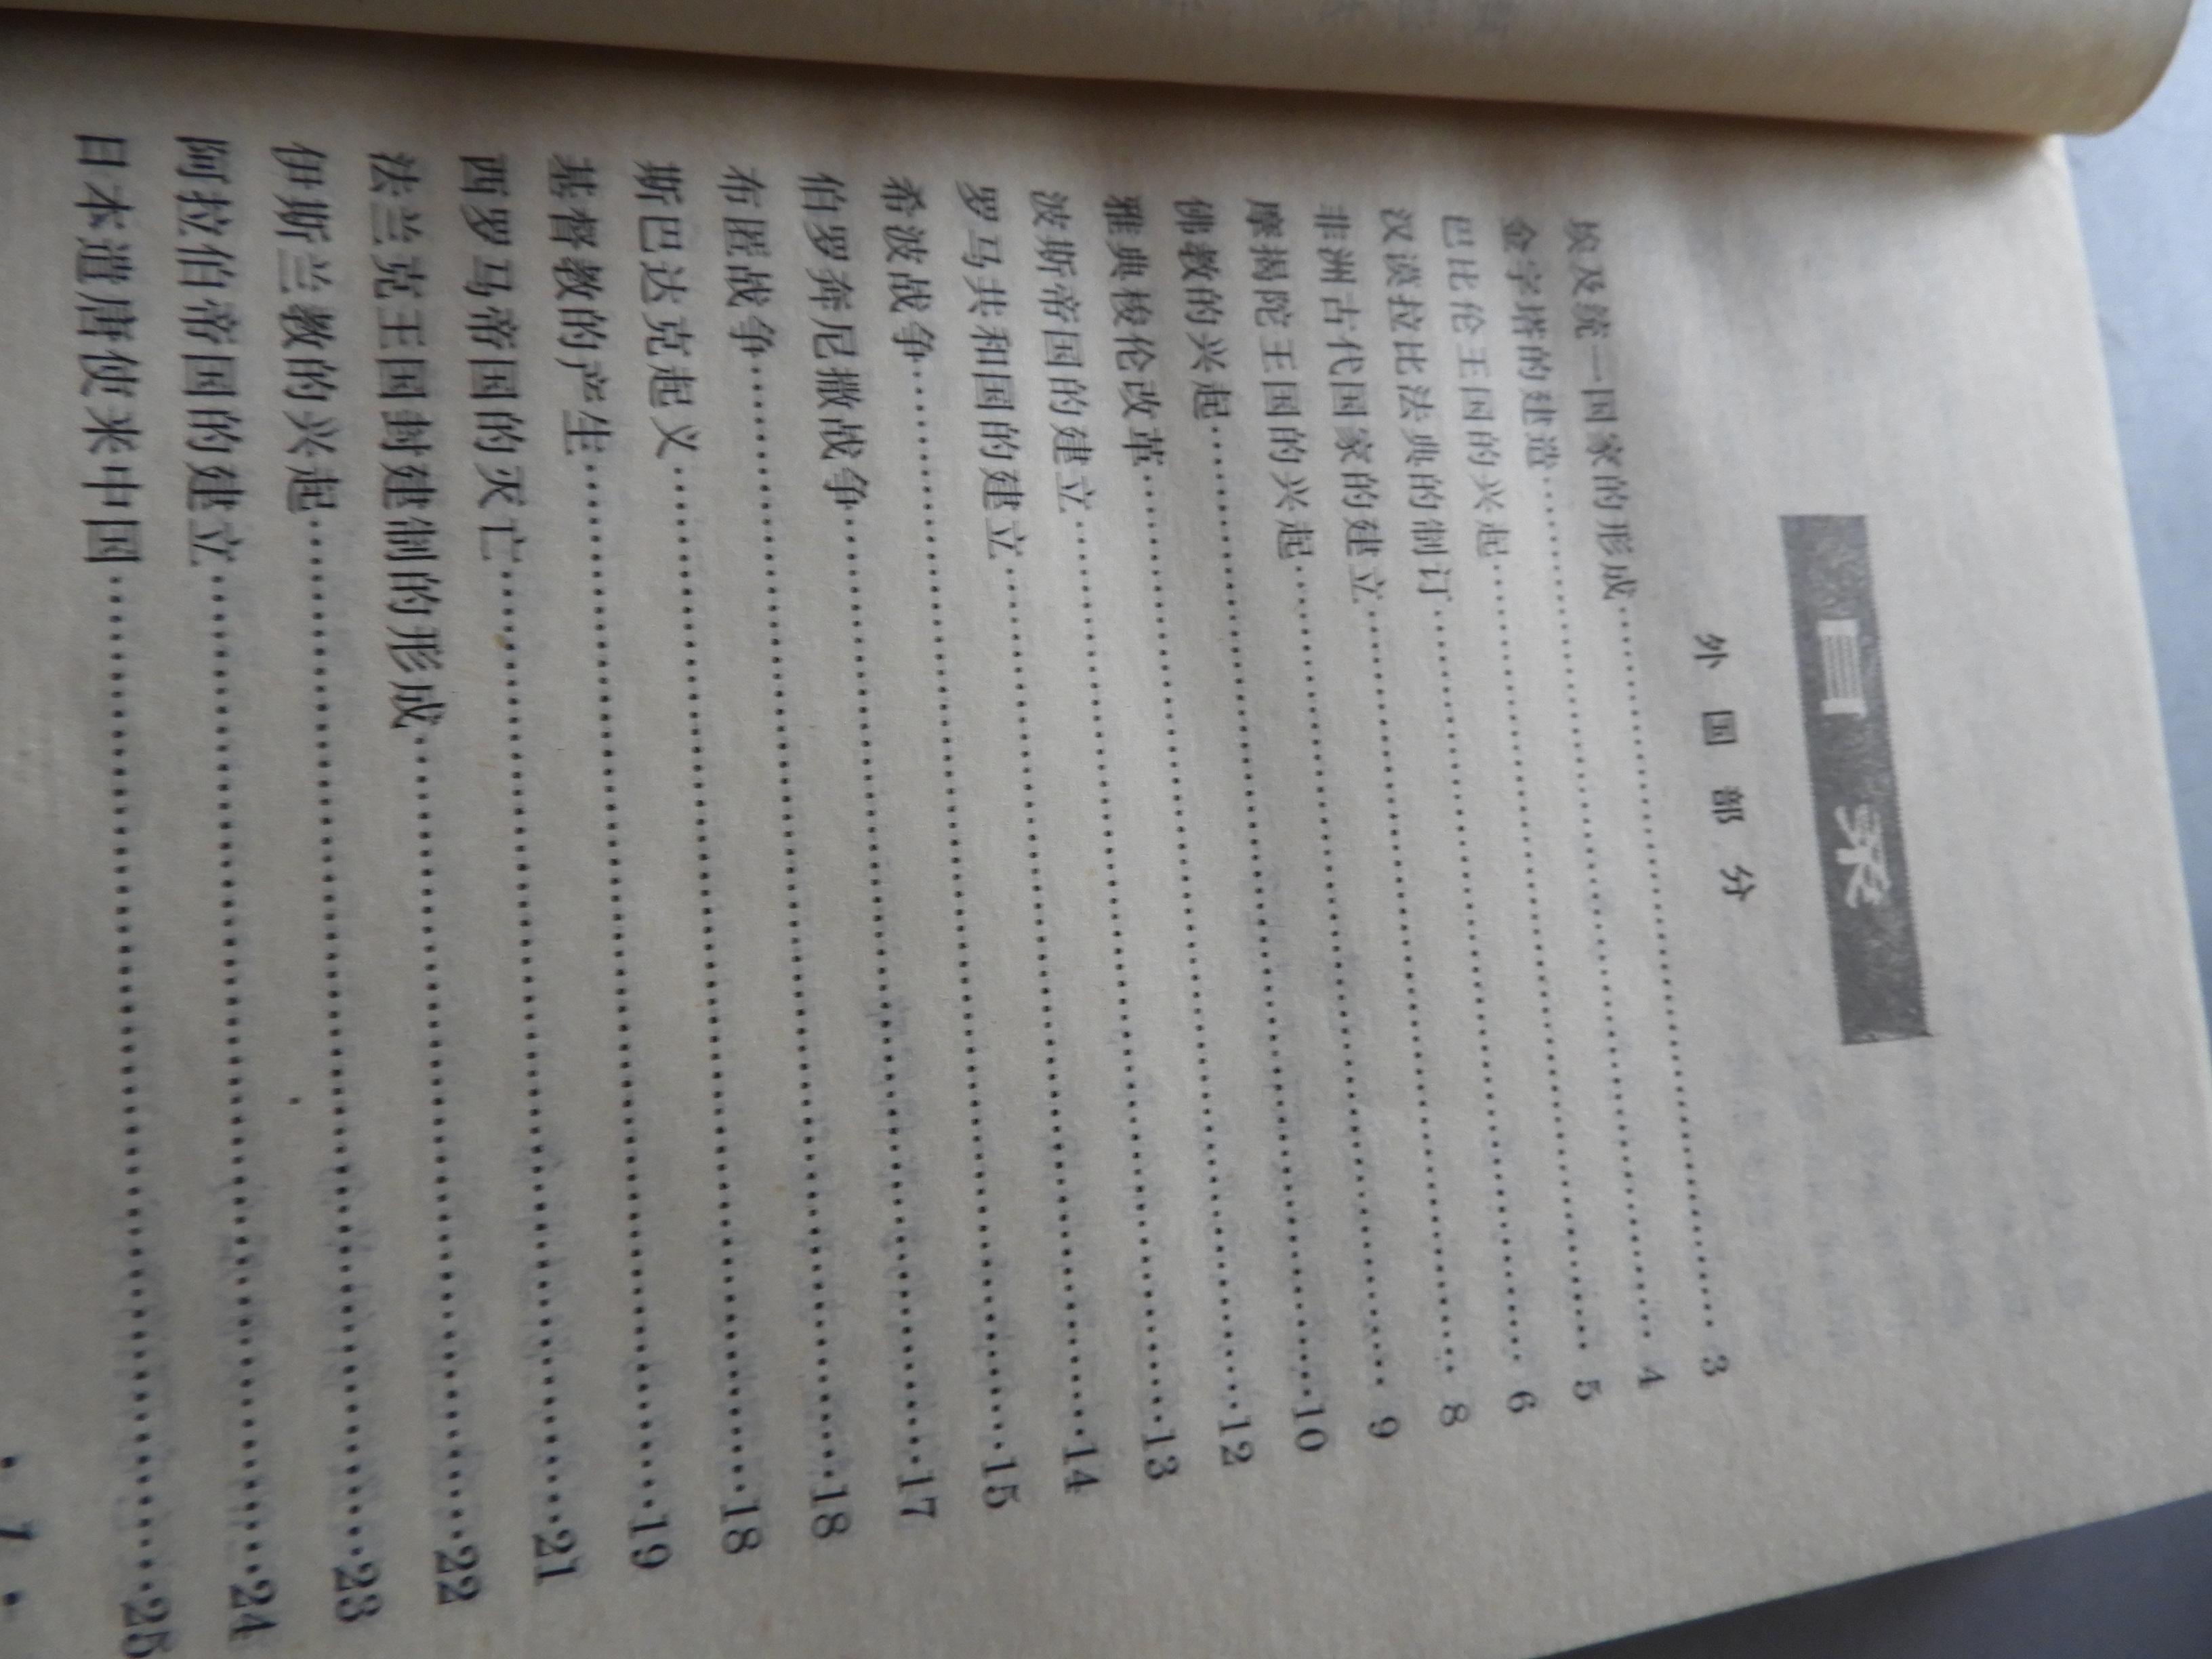 目 录
外 国 部 分
埃及统一国家的形成……………………………………3
金字塔的建造……………………………………4
巴比伦王国的兴起……………………………………5
汉谟拉比法典的制订……………………………………6
非洲古代国家的建立……………………………………8
摩揭陀王国的兴起……………………………………9
佛教的兴起……………………………………10
雅典梭伦改革……………………………………12
波斯帝国的建立……………………………………13
罗马共和国的建立……………………………………14
希波战争……………………………………15
伯罗奔尼撒战争……………………………………17
布匿战争……………………………………18
斯巴达克起义……………………………………18
基督教的产生……………………………………19
西罗马帝国的灭亡……………………………………21
法兰克王国封建制的形成……………………………………22
伊斯兰教的兴起……………………………………23
阿拉伯帝国的建立……………………………………24
日本遣唐使来中国……………………………………25
· 1 ·